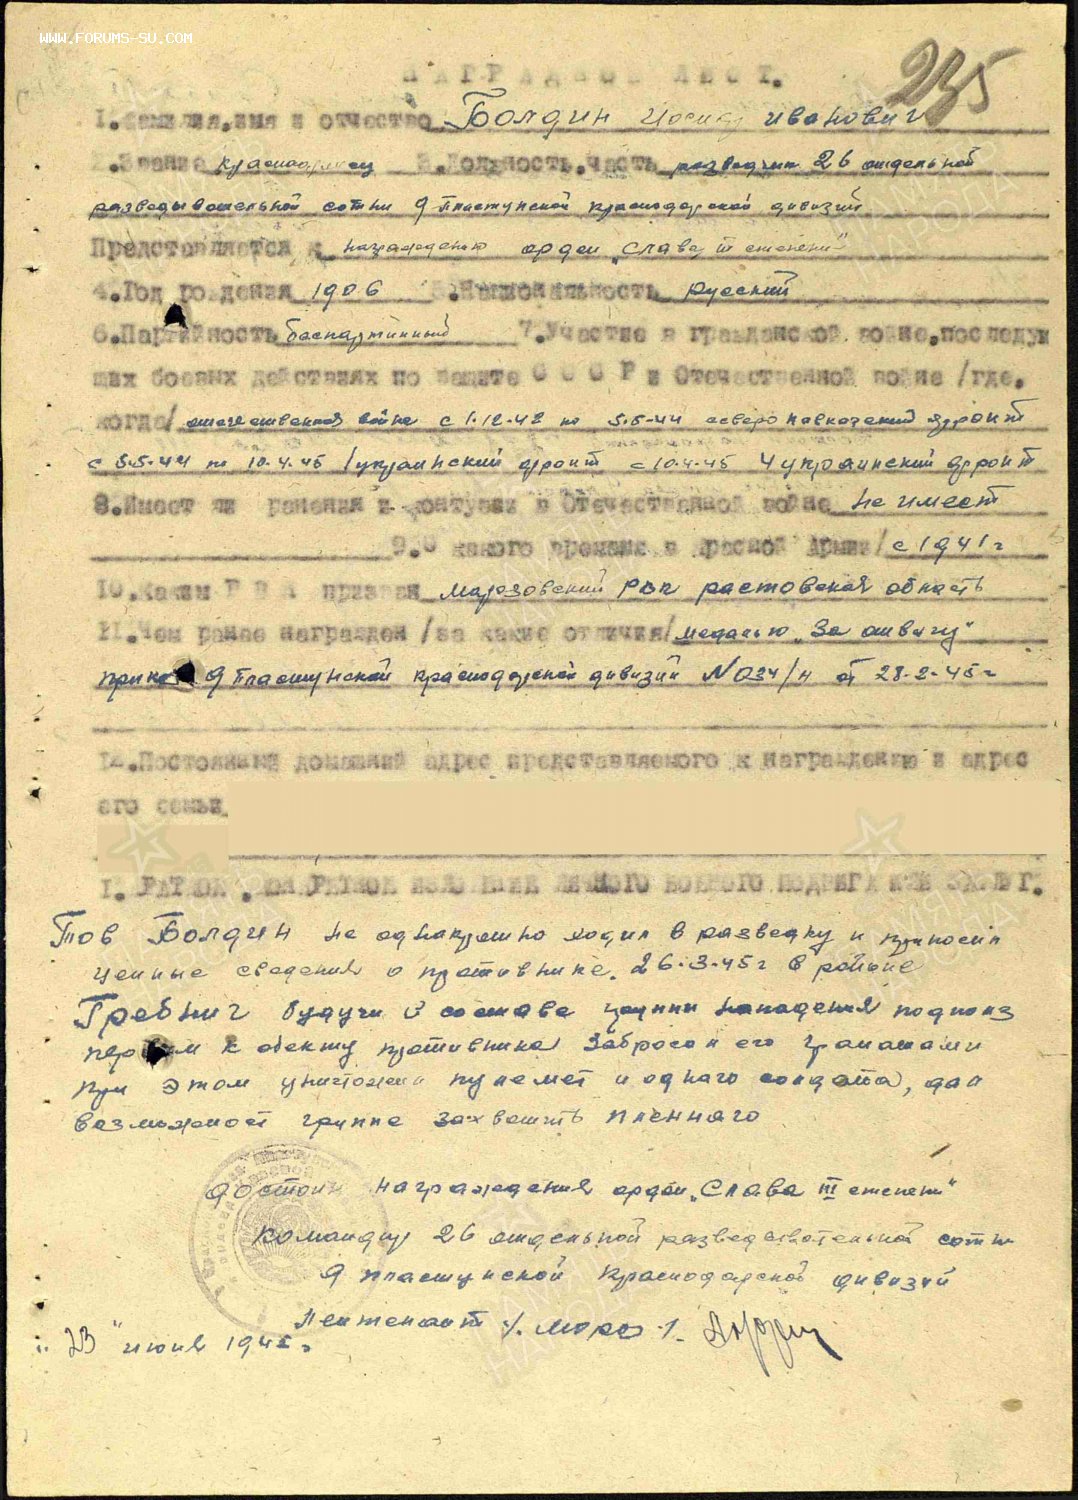 WWW.FORUMS-SU.COM
235
НАГРАДНОЙ ЛИСТ.
1.Фамилия,имя и отчество Болдин Иосиф Иванович
2.Звание красноармеец 3.Должность,часть разведчик 26 отдельной
разведывательной сотни 9 Пластунской краснодарской дивизии
Представляется к награждению орден „Слава III степени"
4.Год рождения 1906 5.Национальность русский
6.Партийность беспартийный 7.Участие в гражданской войне,последую
щих боевых действиях по защите СССР и Отечественной войне /где,
когда/ отечественная война с 1-12-42 по 5-5-44 северо кавказский фронт
с 5-5-44 по 10-4-45 1 украинский фронт с 10-4-45 4 украинский фронт
8.Имеет ли ранения и контузии в Отечественной войне не имеет
9.С какого времени в Красной Армии/ с 1941 г
10.Каким РВК призван РВК ростовская область
11.Чем ранее награжден /за какие отличия/ медалью „За отвагу"
приказ 9 Пластунской краснодарской дивизии N 034/н от 28-2-45 г
12.Постоянный домашний адрес представляемого к награждению и адрес
его семьи
I. КРАТКОЕ, КОНКРЕТНОЕ ИЗЛОЖЕНИЕ ЛИЧНОГО БОЕВОГО ПОДВИГА ИЛИ ЗАСЛУГ.
Тов Болдин не однакратно ходил в разведку и приносил
ценные сведения о противнике. 26-3-45 г в районе
будучи в составе группы нападения подполз
первым к обекту противника забросал его гранатами
при этом уничтожил пулемет и одного солдата, дал
возможност группе захватить пленного
достоин награждения орден „Слава III степени"
Командир 26 отдельной разведывательной сотни
9 пластунской Краснодарской дивизии
Лейтенант /. Мороз ./.
„23" июня 1945 г.